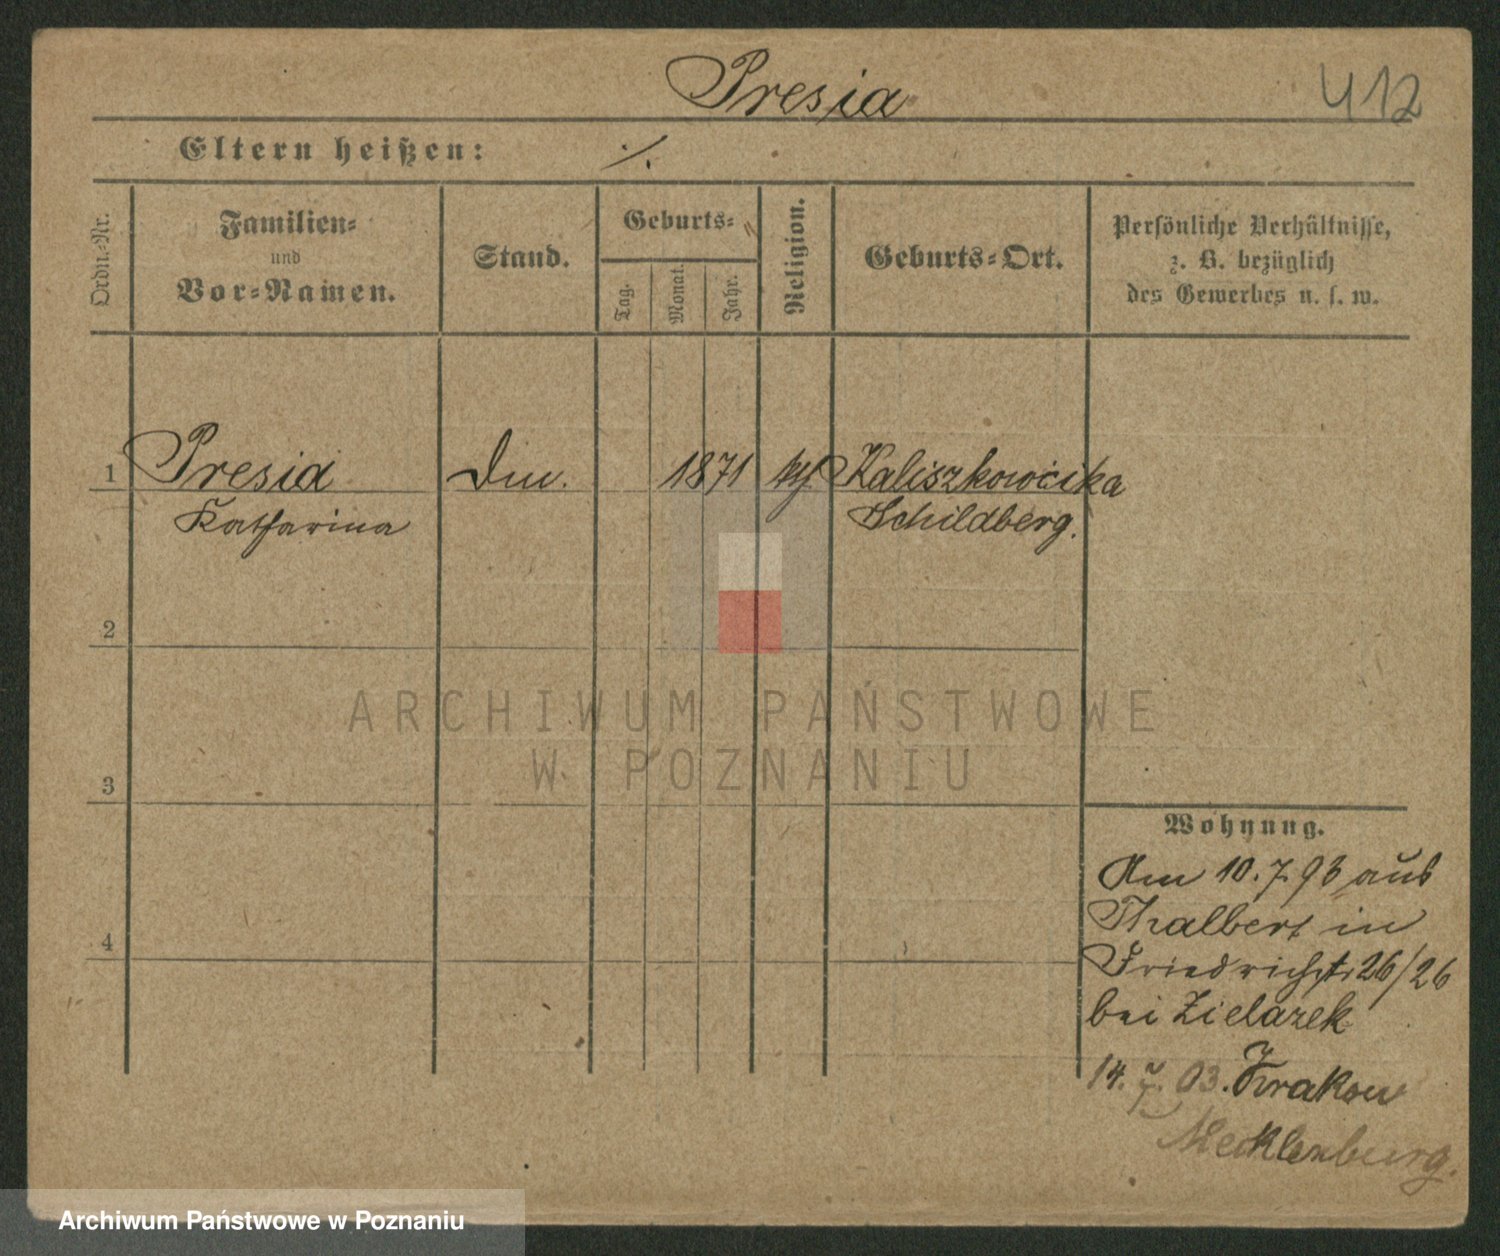 Presia
412
Eltern heißen: ./.
Ordn.-Nr.
Familien-
und
Vor-Namen.
Stand.
Geburts-
Tag.
Monat.
Jahr.
Religion.
Geburts-Ort.
Persönliche Verhältnisse,
z. B. bezüglich
des Gewerbes u. s. w.
1 Presia
Katharina
1871
Schildberg.
2
3
4
ARCHIWUM PAŃSTWOWE
W POZNANIU
Wohnung.
Am 10.7.93 aus
in
Friedrichstr 26/26
bei Zielazek
14. 7. 03. Krakow
Mecklenburg.
Archiwum Państwowe w Poznaniu